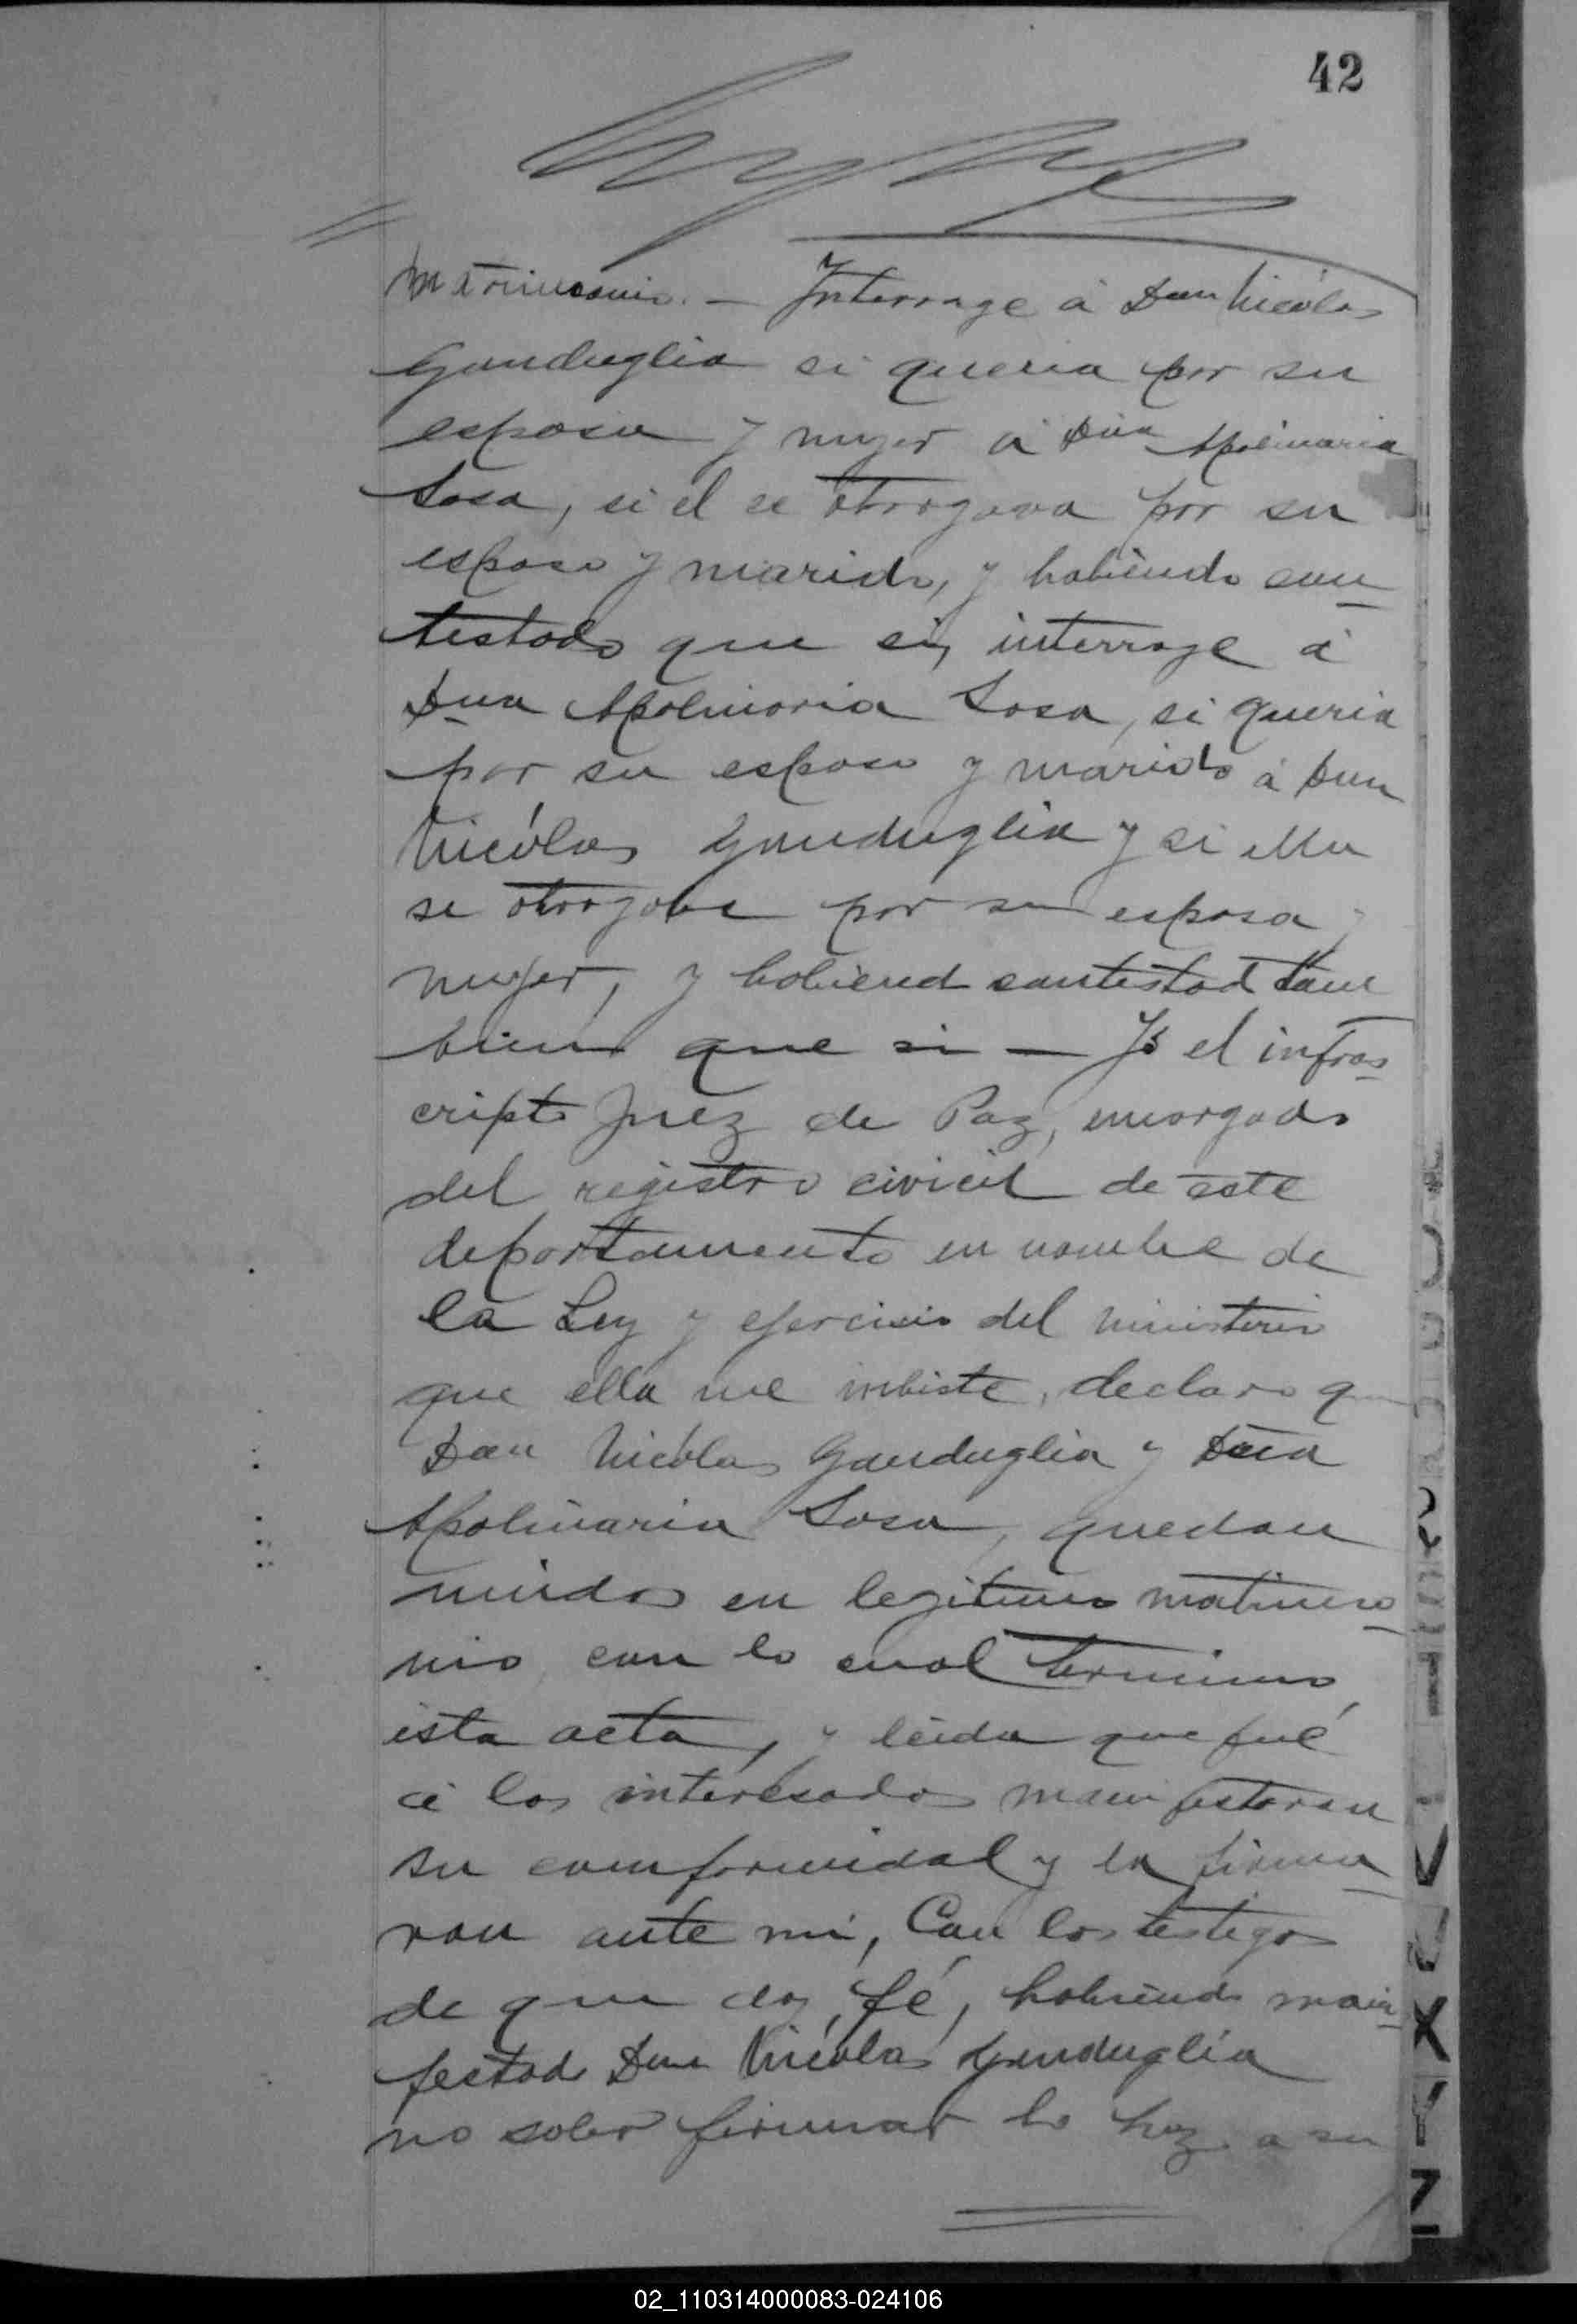 42
matrimonio. — Interroge á Don Nicólas
Ganduglia si queria por su
esposa y mujer á Dña Apolinaria
Sosa, si el se otrogava por su
esposo y marido, y habiendo con
testado que si, interroge á
Dna Apolinaria Sosa, si queria
por su esposo y marido á Don
Nicólas Ganduglia y si ella
se otrogaba por su esposa y
mujer, y habiend contestad tam
bien que si — Yo el infras
cripto Juez de Paz, encargado
del registro civicil de este
departamento en nombre de
la Ley y ejercicio del ministerio
que ella me inbiste, declaro q
Don Nicólas Ganduglia y Dña
Apolinaria Sosa, quedan
unidos en legitimo matrimo
nio con lo cual termino
esta acta, y leida que fué
á los interesados manifestaron
su comformidad y la firma
ron ante mi, Con los testigos
de que doy fé, habiendo mani
festado Don Nicólas Ganduglia
no saber firmar lo hoz a su
02_110314000083-024106